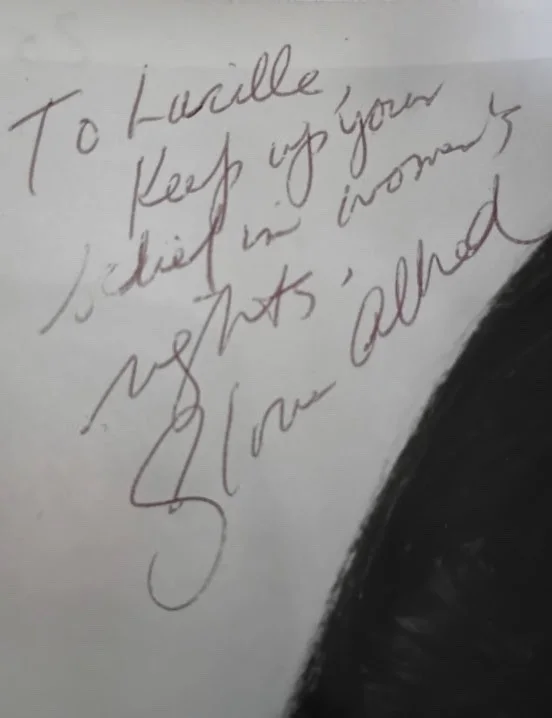 To Lucille,
Keep up your
belief in women's
rights,
Gloria Allred